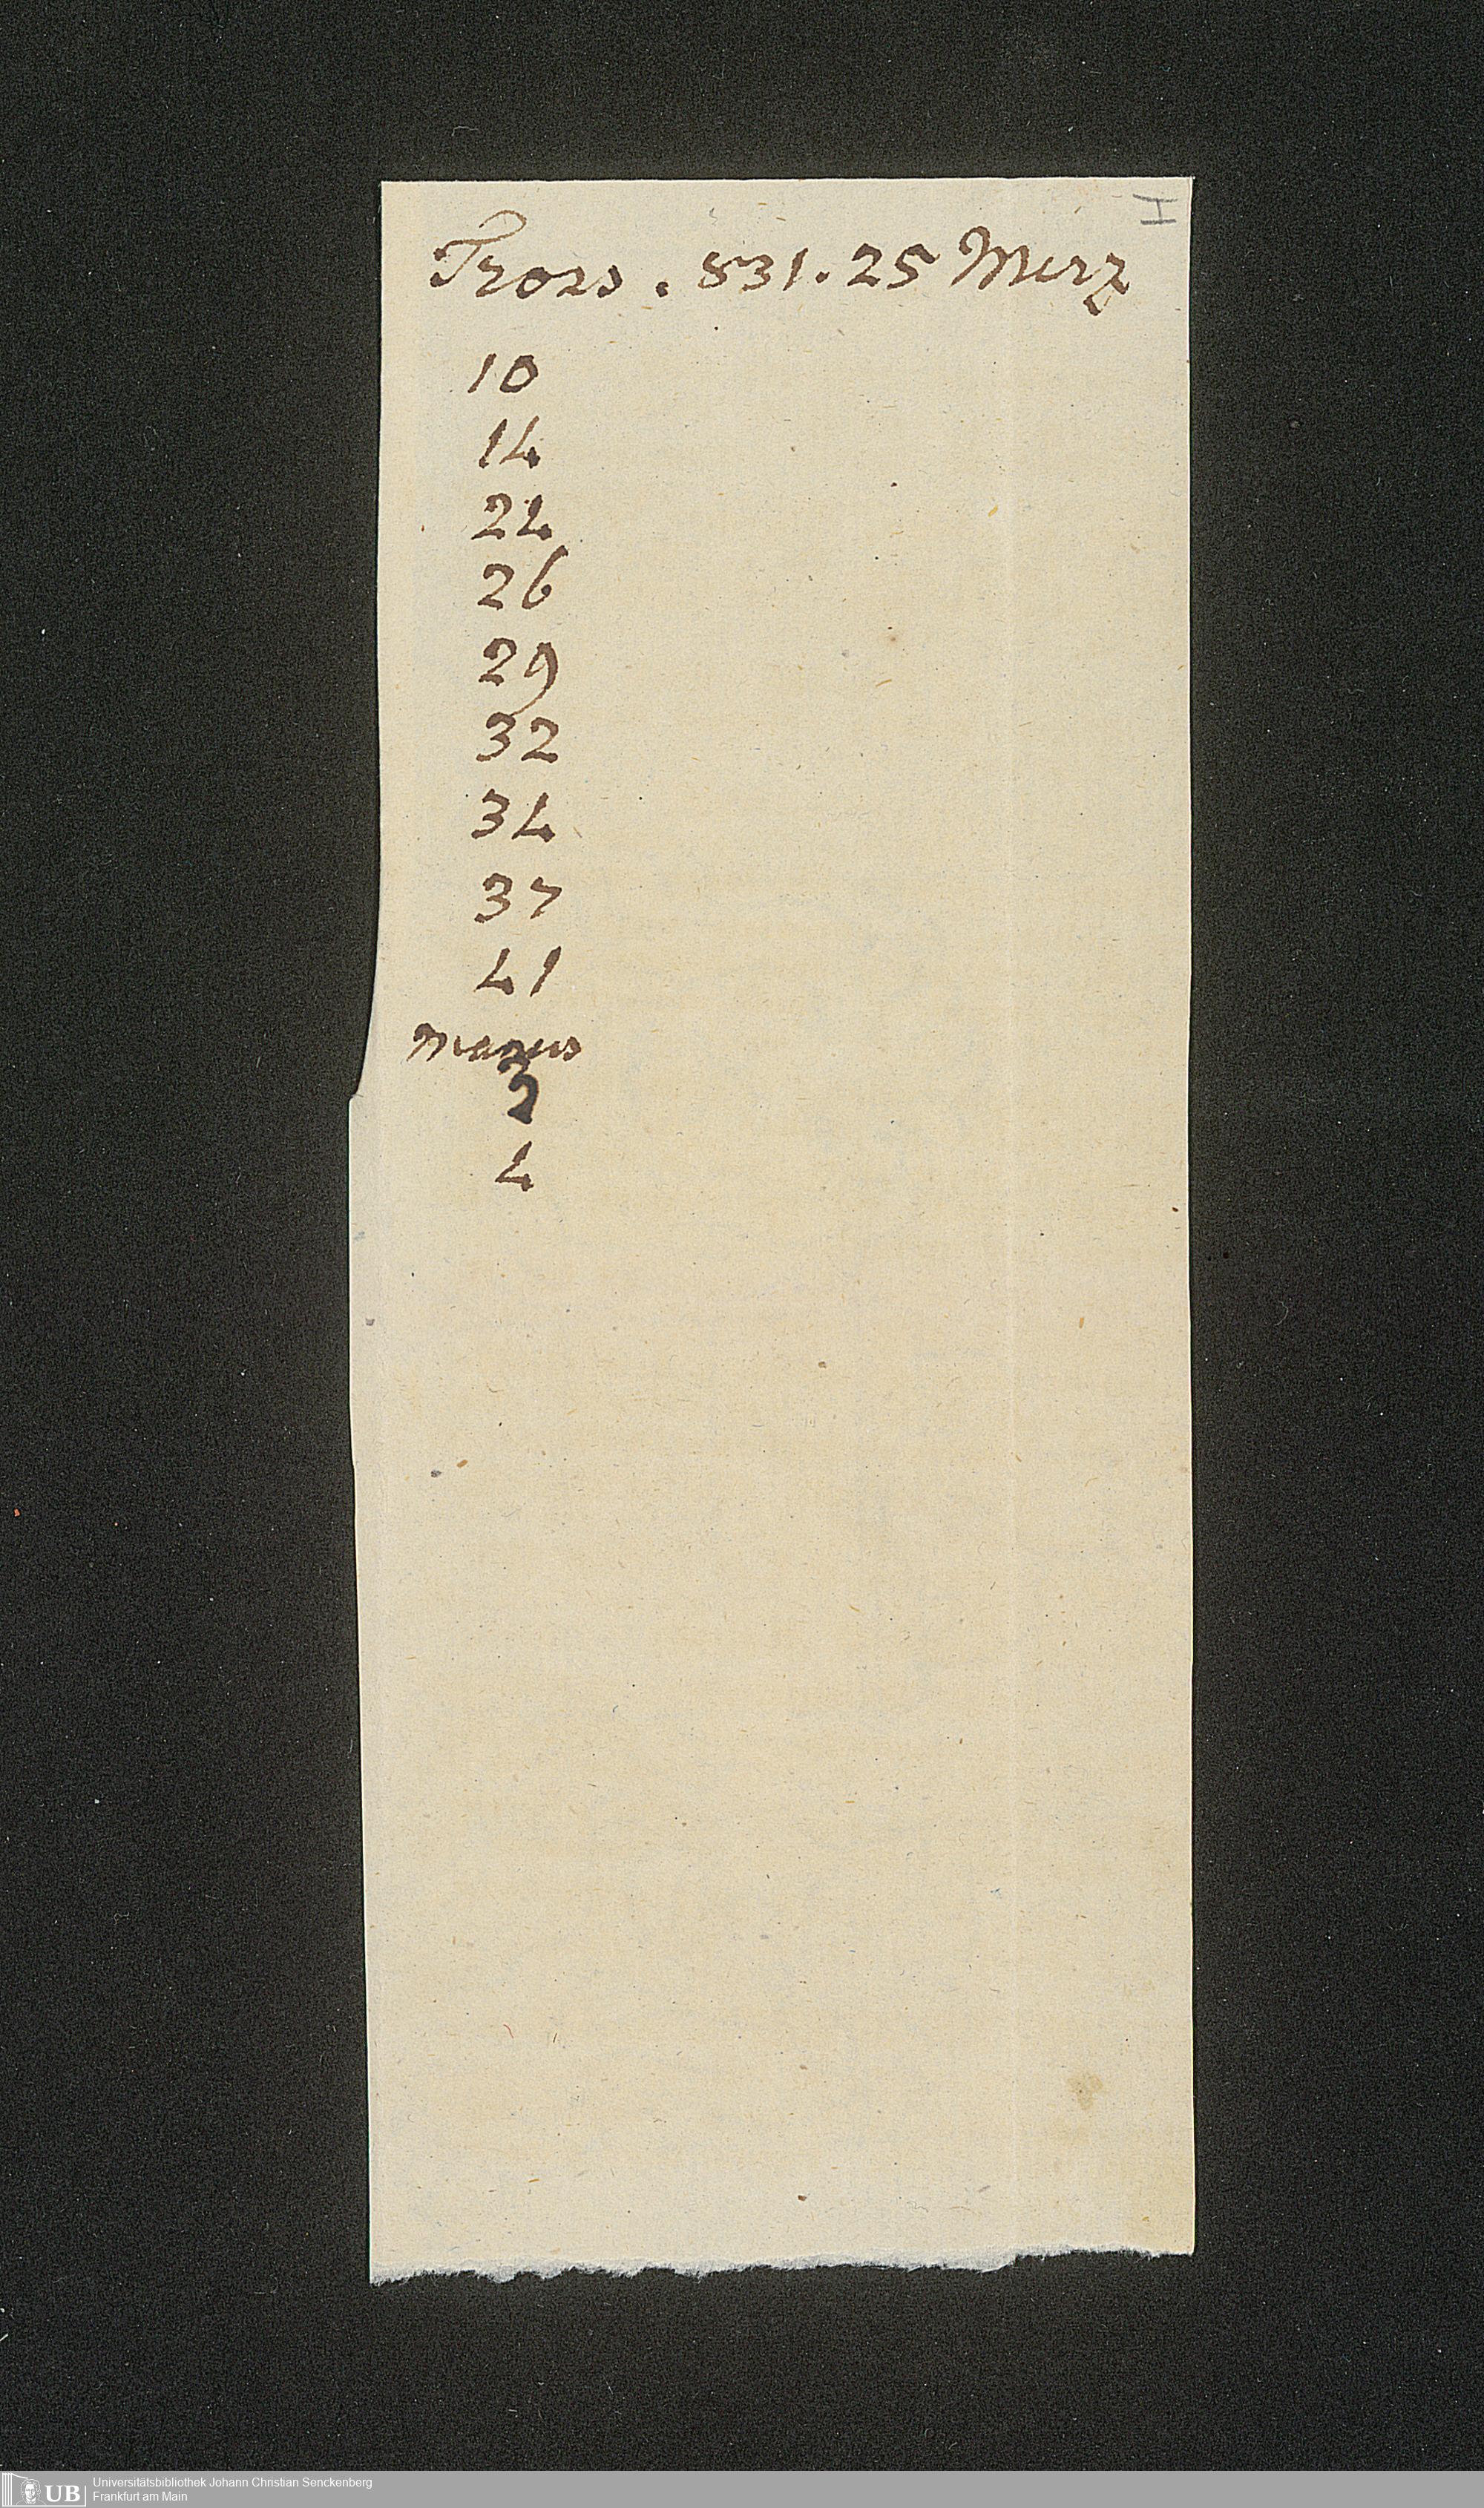 I
Tross. 831. 25 Merz
10
14
24
26
29
32
34
37
41
Manus
3
4
UB Universitätsbibliothek Johann Christian Senckenberg
Frankfurt am Main